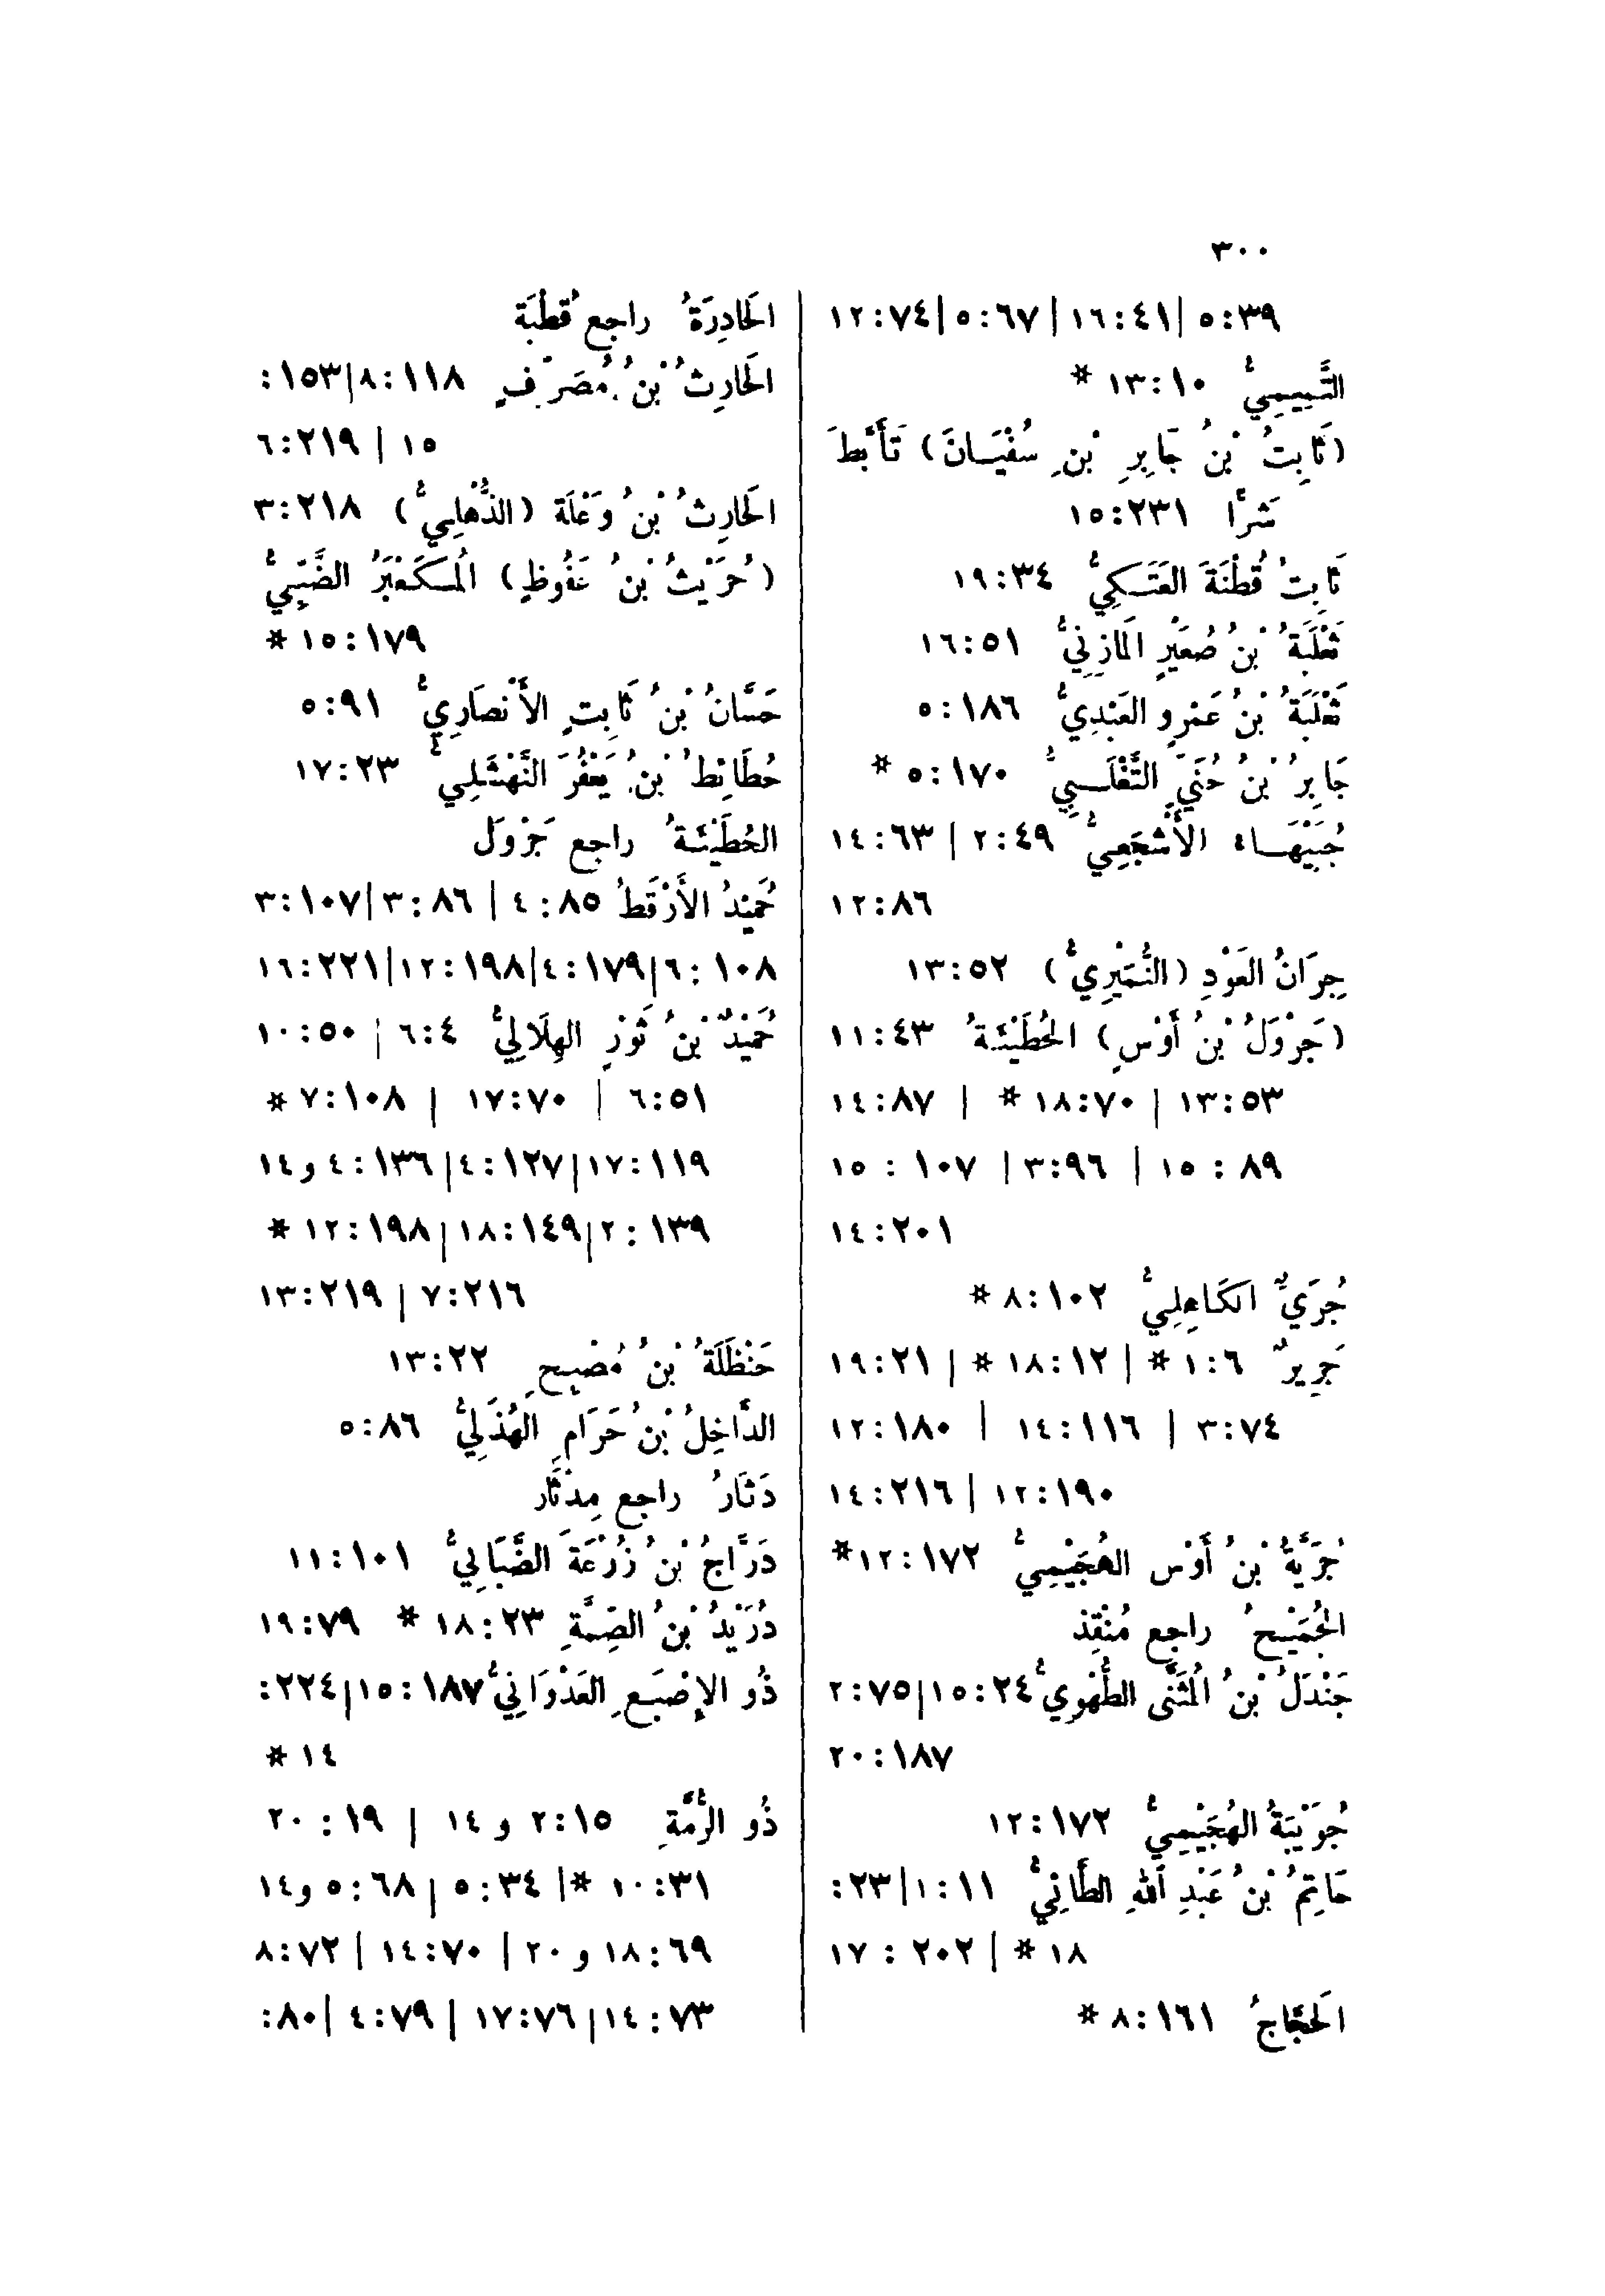 ٣٠٠
٥:٣٩ | ١٦:٤١ | ٥:٦٧ | ١٢:٧٤
التَّمِيمِيُّ ١٣:١٠ *
(ثَابِتُ بْنُ جَابِرِ بْنِ سُفْيَـانَ) تَأَبَّطَ
شَرًّا ١٥:٢٣١
ثَابِتُ قُطْنَةَ العَتَـكِيُّ ١٩:٣٤
ثَعْلَبَةُ بْنُ صُعَيْرٍ المَازِنِيُّ ١٦:٥١
ثَعْلَبَةُ بْنُ عَمْرٍو العَبْدِيُّ ٥:١٨٦
جَابِرُ بْنُ حُنَيٍّ التَّغْلَـبِيُّ ٥:١٧٠ *
جُبَيْهَـاء الأَشْجَعِيُّ ٢:٤٩ | ١٤:٦٣
١٢:٨٦
جِرَانُ العَوْدِ (النُّمَيْرِيُّ) ١٣:٥٢
(جَرْوَلُ بْنُ أَوْسٍ) الحُطَيْئَةُ ١١:٤٣
١٣:٥٣ | ١٨:٧٠ * | ١٤:٨٧
١٥:٨٩ | ٣:٩٦ | ١٥:١٠٧
١٤:٢٠١
جُرَيٌّ الكَاهِلِيُّ ٨:١٠٢ *
جَرِيرٌ ١:٦ * | ١٨:١٢ * | ١٩:٢١
٣:٧٤ | ١٤:١١٦ | ١٢:١٨٠
١٢:١٩٠ | ١٤:٢١٦
جُرَيَّةُ بْنُ أَوْس الهُجَيْمِيُّ ١٢:١٧٢ *
الجُمَيْحُ راجع مُنْقِذ
جَنْدَلُ بْنُ المُثَنَّى الطُّهَوِيُّ ١٥:٢٤ | ٢:٧٥
٢٠:١٨٧
جُوَيْبَةُ الهُجَيْمِيُّ ١٢:١٧٢
حَاتِمُ بْنُ عَبْدِ اللهِ الطَّائِيُّ ١:١١ | ٢٣:
١٨ * | ١٧:٢٠٢
الحَجَّاجُ ٨:١٦١ *
الحَادِرَةُ راجع قُطْبَة
الحَارِثُ بْنُ مُصَرِّفٍ ٨:١١٨ | ١٥٣:
١٥ | ٦:٢١٩
الحَارِثُ بْنُ وَعْلَة (الذُّهْلِيُّ) ٣:٢١٨
(حُرَيْثُ بْنُ عَفُوظٍ) المُـكَعْبَرُ الضَّبِّيُّ
١٥:١٧٩ *
حَسَّانُ بْنُ ثَابِتٍ الأَنْصَارِيُّ ٥:٩١
حُطَائِطُ بْنُ يَعْفُرَ النَّهْشَلِيُّ ١٧:٢٣
الحُطَيْئَةُ راجع جَرْوَل
حُمَيْدُ الأَرْقَطُ ٤:٨٥ | ٣:٨٦ | ٣:١٠٧
٦:١٠٨ | ٤:١٧٩ | ١٢:١٩٨ | ١٦:٢٢١
حُمَيْدُ بْنُ ثَوْرٍ الهِلَالِيُّ ٦:٤ | ١٠:٥٠
٦:٥١ | ١٧:٧٠ | ٧:١٠٨ *
١٧:١١٩ | ٤:١٢٧ | ٤:١٣٦ و١٤
٢:١٣٩ | ١٨:١٤٩ | ١٢:١٩٨ *
٧:٢١٦ | ١٣:٢١٩
حَنْظَلَةُ بْنُ مُصْبِحٍ ١٣:٢٢
الدَّاخِلُ بْنُ حَرَامٍ الهُذَلِيُّ ٥:٨٦
دَثَارُ راجع مِدْثَار
دَرَّاجُ بْنُ زُرْعَةَ الضَّبَابِيُّ ١١:١٠١
دُرَيْدُ بْنُ الصِّمَّةِ ١٨:٢٣ * ١٩:٧٩
ذُو الإِصْبَعِ العَدْوَانِيُّ ١٥:١٨٧ | ٢٢٤:
١٤ *
ذُو الرُّمَّةِ ٢:١٥ و ١٤ | ٢٠:١٩
١٠:٣١ * | ٥:٣٤ | ٥:٦٨ و١٤
١٨:٦٩ و ٢٠ | ١٤:٧٠ | ٨:٧٢
١٤:٧٣ | ١٧:٧٦ | ٤:٧٩ | ٨٠: